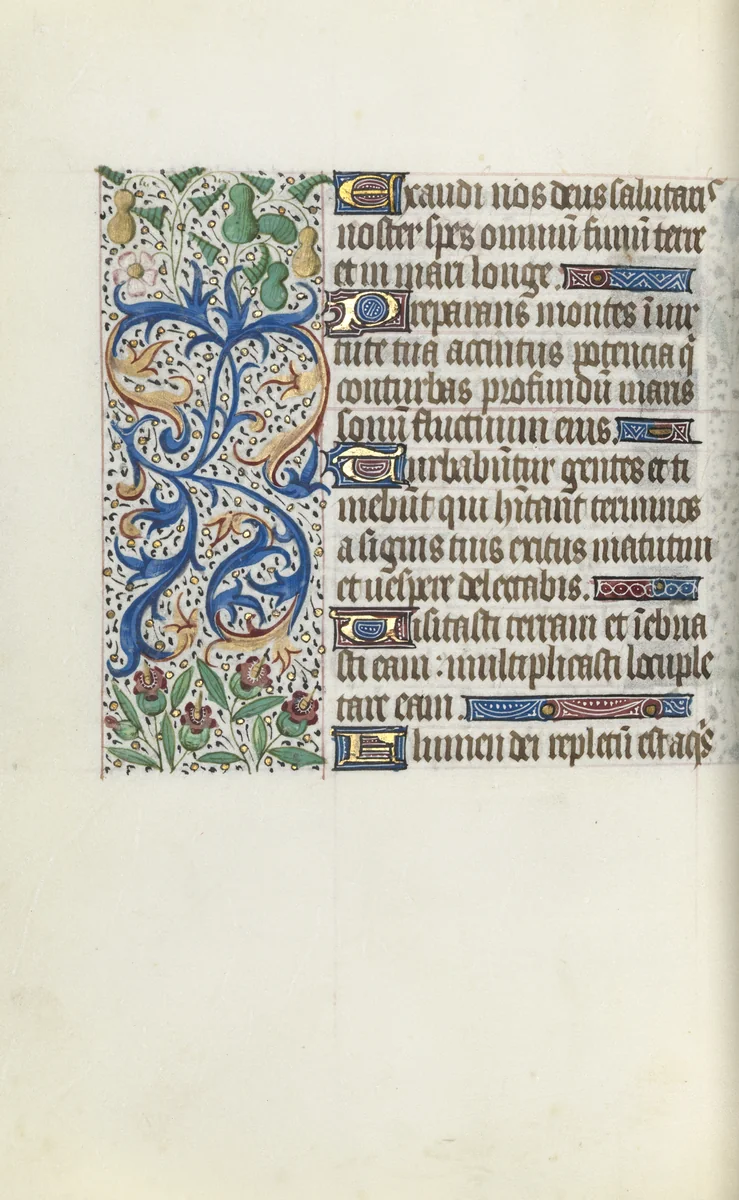 Exaudi nos deus salutari⁹
noster spes omniū finiū terre
et in mari longe.
Preparans montes ī uir
tute tua accintus potencia q̄
conturbas profundū maris
sonū fluctuum eius.
Turbabūtur gentes et ti
mebūt qui hītant terminos
a signis tuis exitus matutini
et uespere delectabis.
Uisitasti terram et īebria
sti eam : multiplicasti locuple
tare eam
Flumen dei repletū est aq̄s